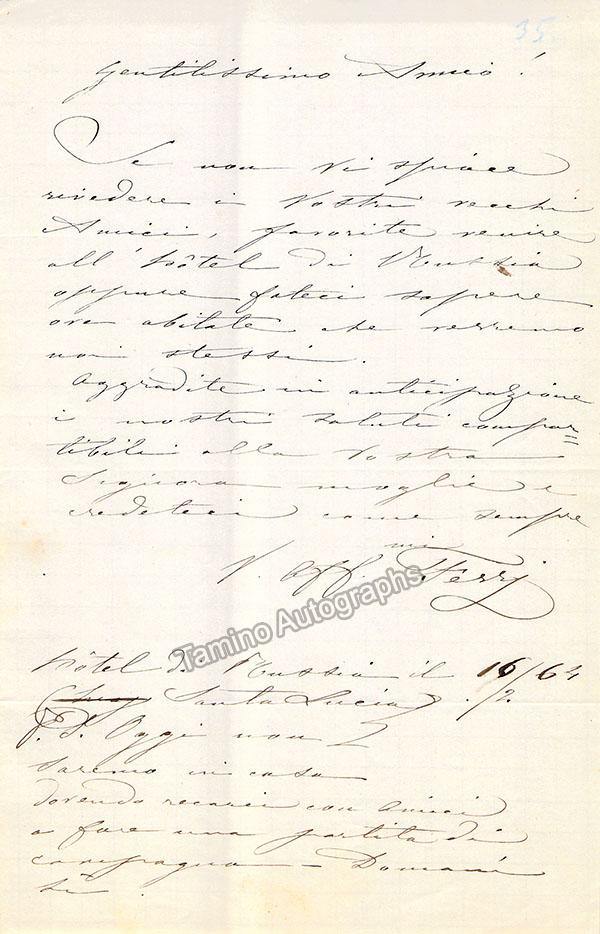 35
Gentilissimo Amico!
Se non vi spiace
rivedere i Vostri vecchi
Amici, favorite venire
all'hôtel di Russia
oppure fateci sapere
ove abitate che verremo
noi stessi.
Aggradite in anticipazione
i nostri saluti compar=
tibili alla Vostra
Signora moglie e
credeteci come sempre
V. aff.mi Ferri
Tamino Autographs
hôtel di Russia il 16/64
Santa Lucia) ./2.
P.S. Oggi non
saremo in casa
dovendo recarci con amici
a fare una partita di
campagna – Domani
si.